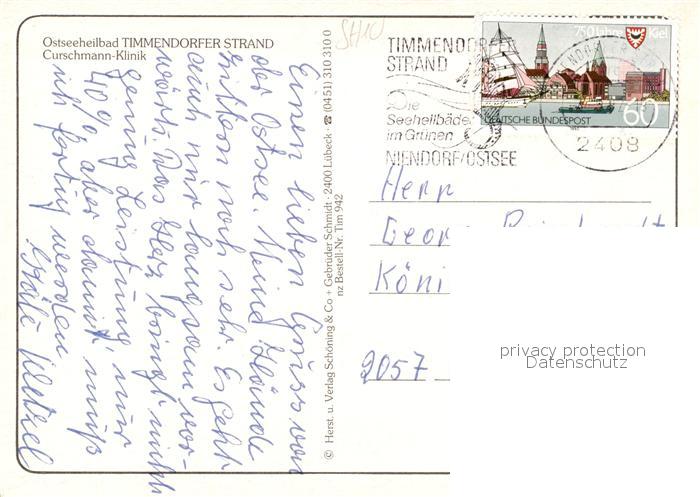 Ostseeheilbad TIMMENDORFER STRAND
Curschmann-Klinik
Einen lieben Gruss von
der Ostsee. Meine Hände
zittern noch sehr. Es geht
auch nur langsam vor-
wärts. Das Herz bringt nicht
genug Leistung, nur
40% aber damit muß
ich fertig werden
Käte
© Herst. u. Verlag Schöning & Co + Gebrüder Schmidt · 2400 Lübeck · ☎ (0451) 310 310 0
nz Bestell-Nr. Tim 942
SH10
TIMMENDORFER
STRAND
Die
Seeheilbäder
im Grünen
NIENDORF/OSTSEE
750 Jahre Kiel
60
DEUTSCHE BUNDESPOST
2408
Herr
Georg
Köni
2057
privacy protection
Datenschutz